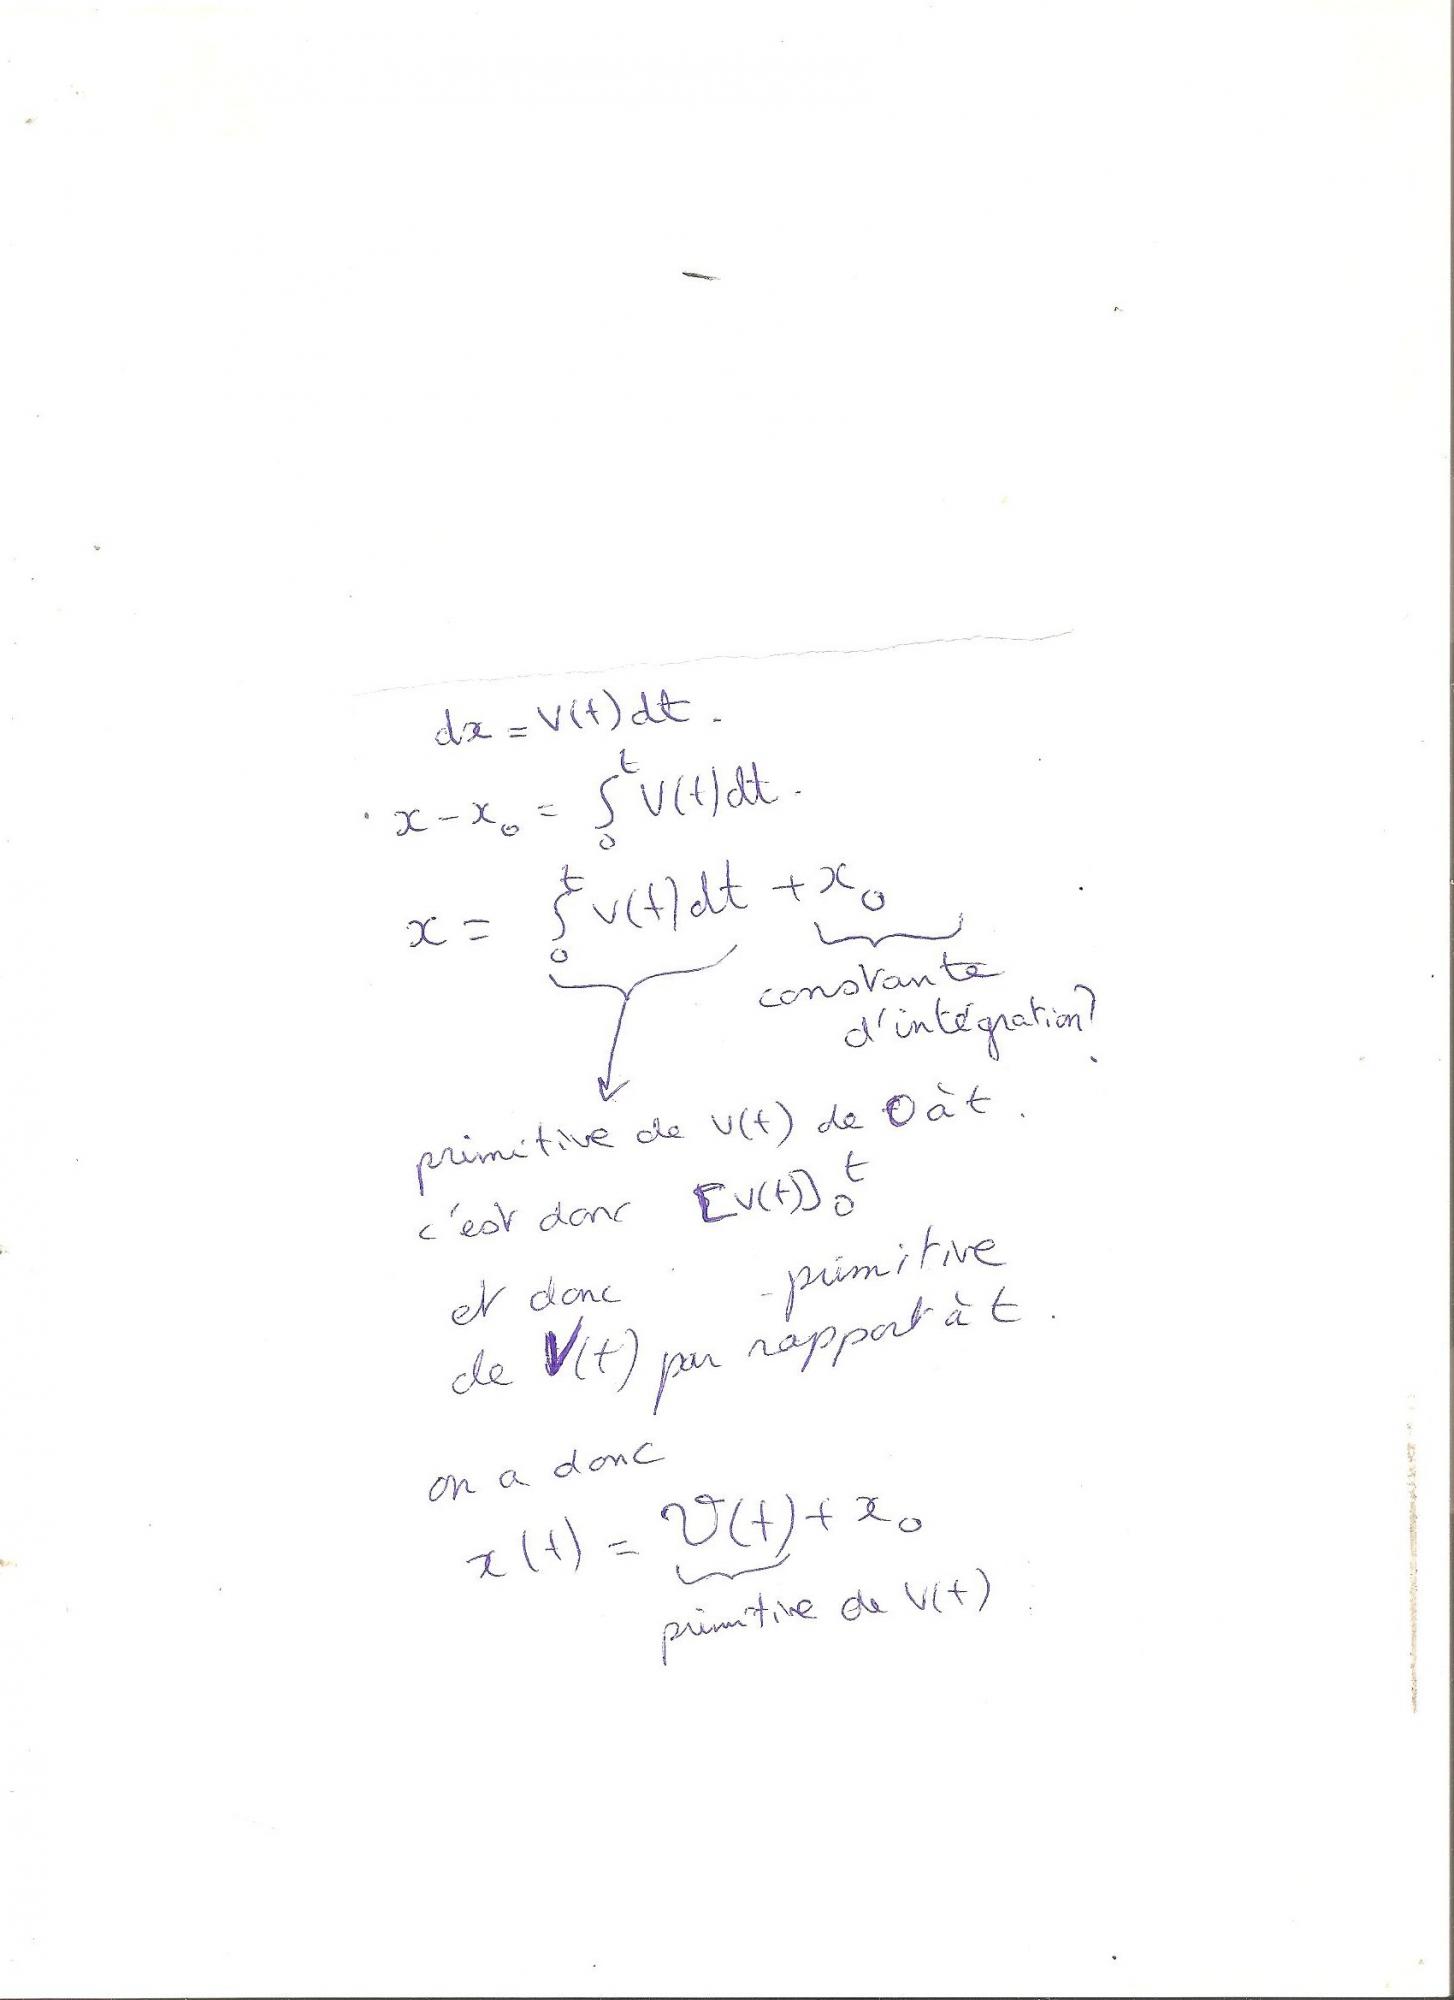 dx = V(t) dt.
x - x₀ = ∫₀ᵗ V(t) dt.
x = ∫₀ᵗ v(t) dt + x₀
constante
d'intégration?
primitive de v(t) de 0 à t.
c'est donc [v(t)]₀ᵗ
et donc primitive
de V(t) par rapport à t.
on a donc
x(t) = V(t) + x₀
primitive de v(t)